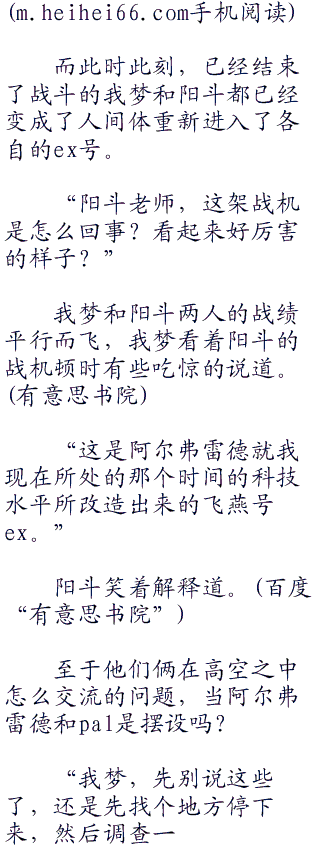 (m.heihei66.com手机阅读)
而此时此刻，已经结束
了战斗的我梦和阳斗都已经
变成了人间体重新进入了各
自的ex号。
“阳斗老师，这架战机
是怎么回事？看起来好厉害
的样子？”
我梦和阳斗两人的战绩
平行而飞，我梦看着阳斗的
战机顿时有些吃惊的说道。
(有意思书院)
“这是阿尔弗雷德就我
现在所处的那个时间的科技
水平所改造出来的飞燕号
ex。”
阳斗笑着解释道。(百度
“有意思书院”)
至于他们俩在高空之中
怎么交流的问题，当阿尔弗
雷德和pal是摆设吗？
“我梦，先别说这些
了，还是先找个地方停下
来，然后调查一